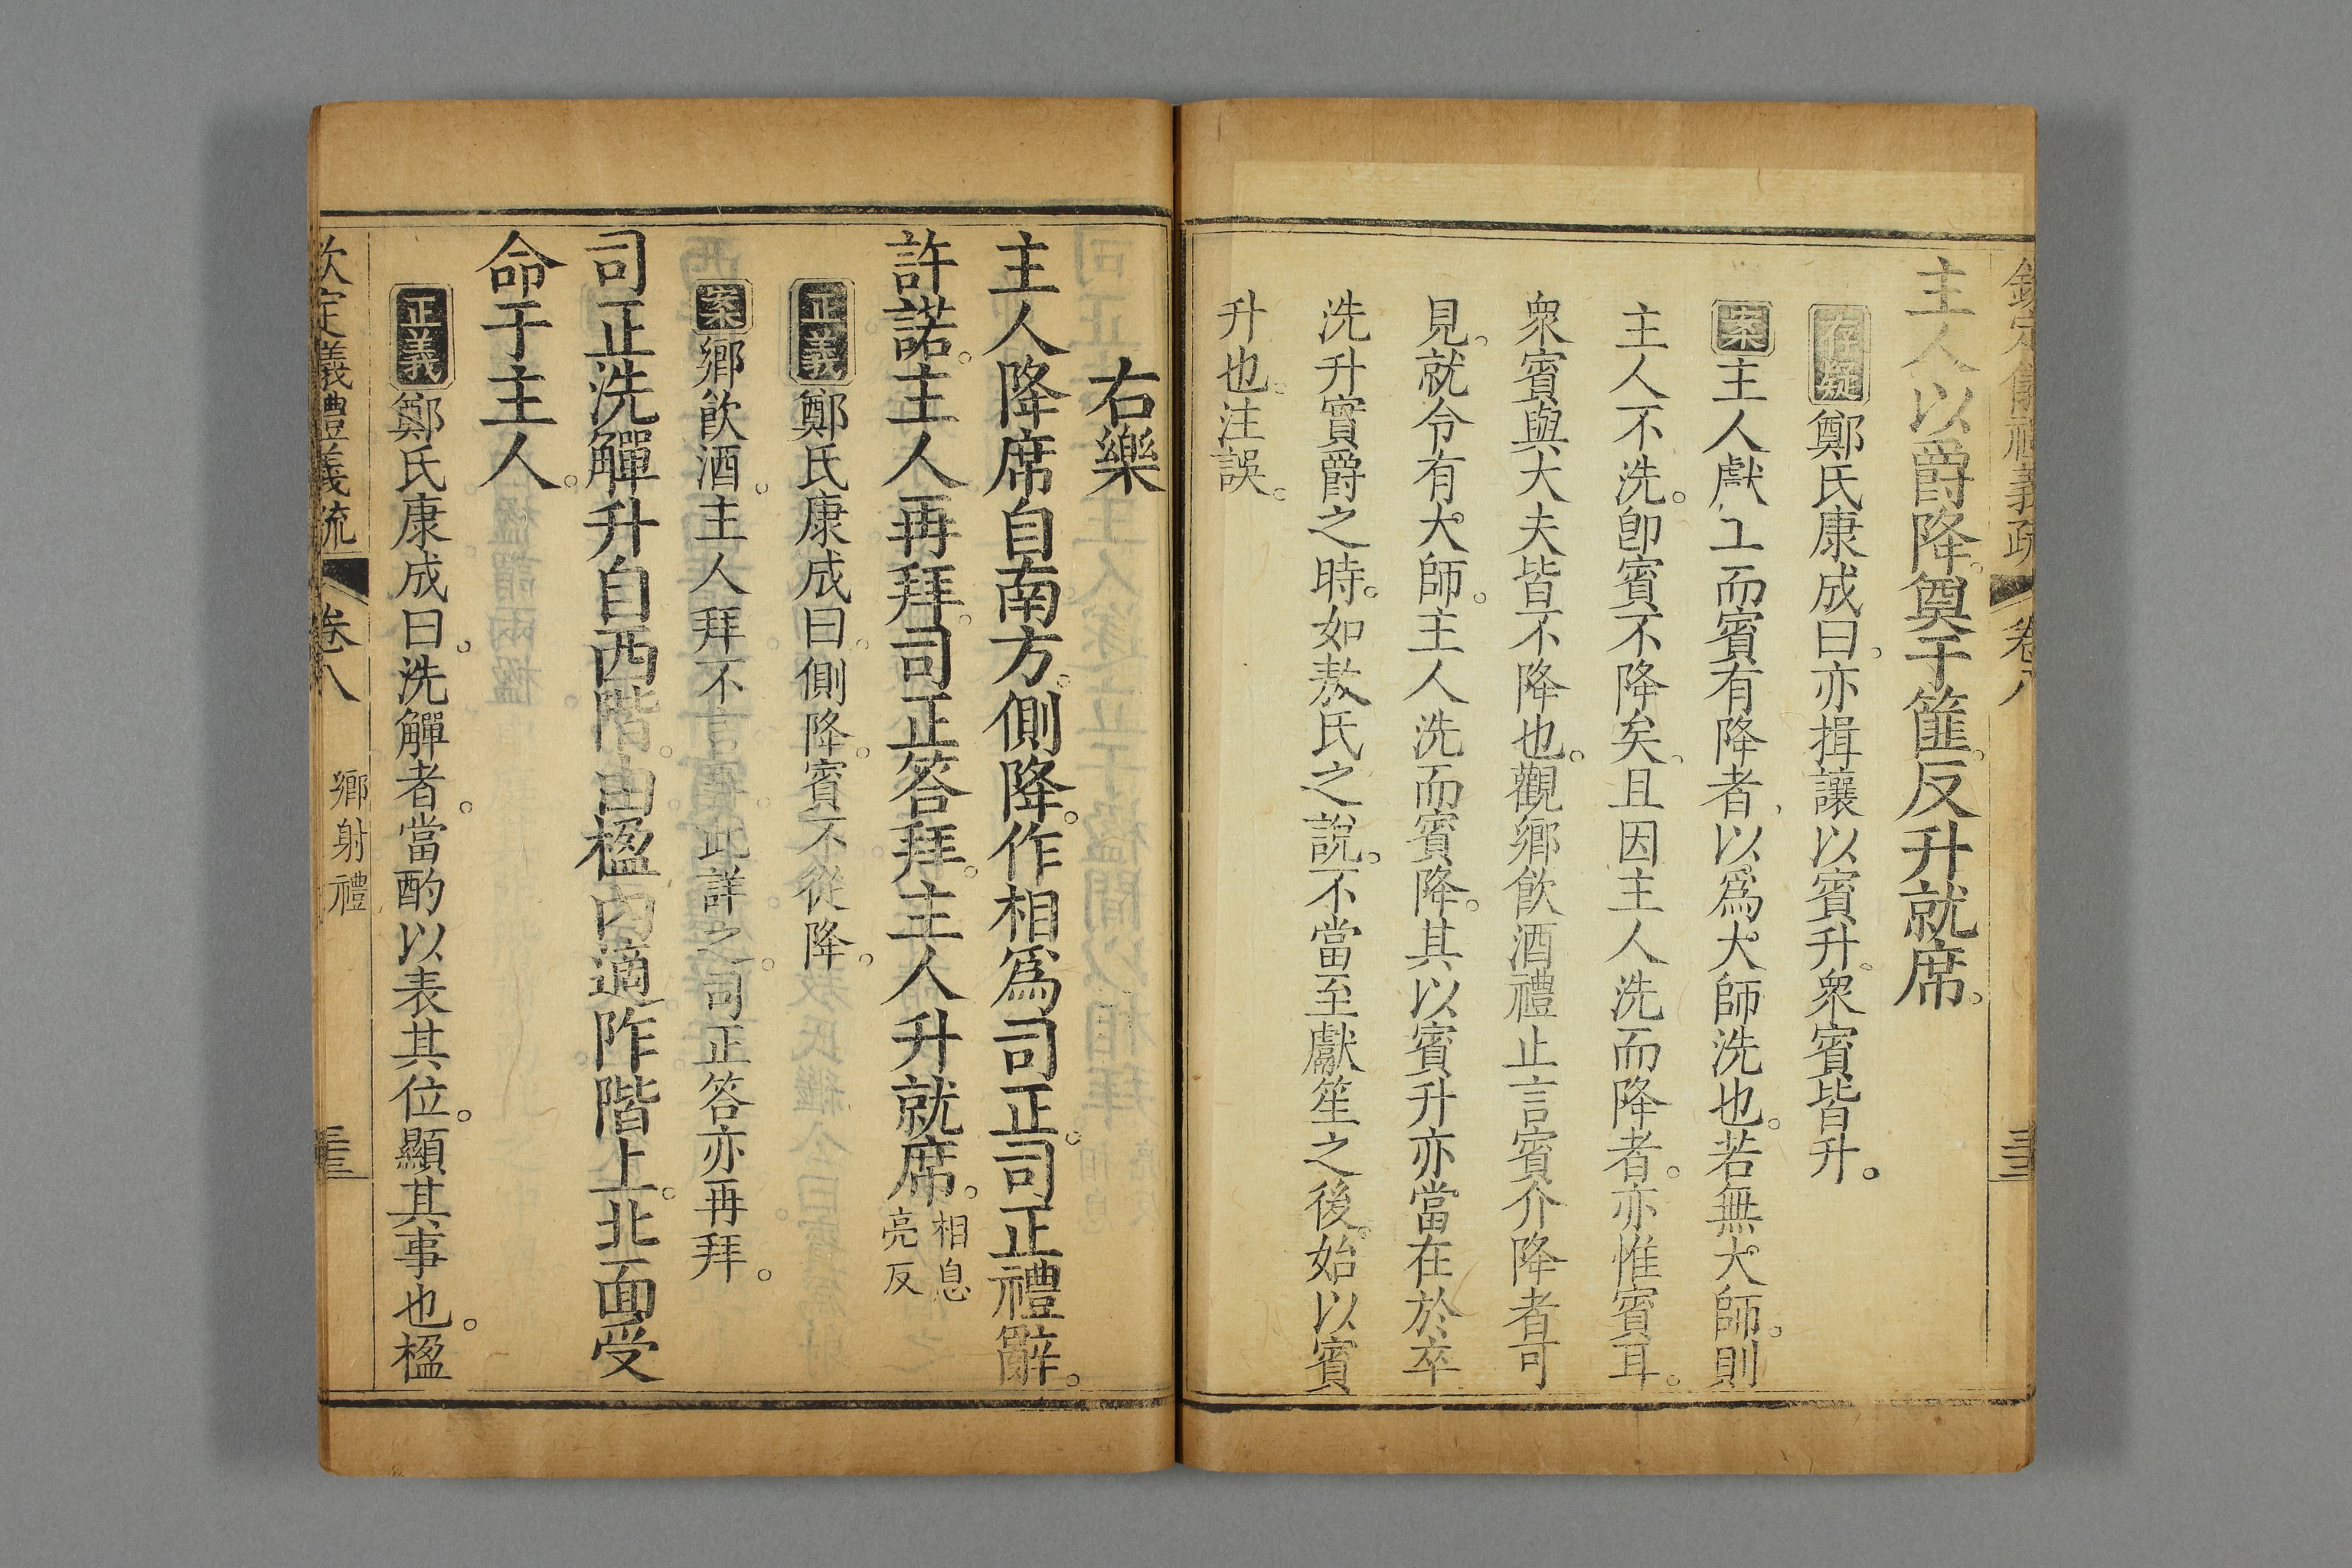 欽定儀禮義疏 卷八
主人以爵降。奠于篚。反升就席。
存疑鄭氏康成曰。亦揖讓以賓升。衆賓皆升。
案主人獻工而賓有降者、以爲大師洗也。若無大師。則
主人不洗。卽賓不降矣。且因主人洗而降者。亦惟賓耳。
衆賓與大夫皆不降也。觀鄉飲酒禮止言賓介降者可
見。就令有大師。主人洗而賓降。其以賓升亦當在於卒
洗升實爵之時。如敖氏之說。不當至獻笙之後。始以賓
升也。注誤。
右樂
主人降席自南方。側降。作相爲司正。司正禮辭。
許諾。主人再拜。司正答拜。主人升就席。相息亮反
正義鄭氏康成曰。側降。賓不從降。
案鄉飲酒。主人拜不言賓。此詳之。司正答亦再拜。
司正洗觶升自西階。由楹內適阼階上。北面受
命于主人。
正義鄭氏康成曰。洗觶者。當酌以表其位。顯其事也。楹
欽定義禮義疏 卷八 鄉射禮